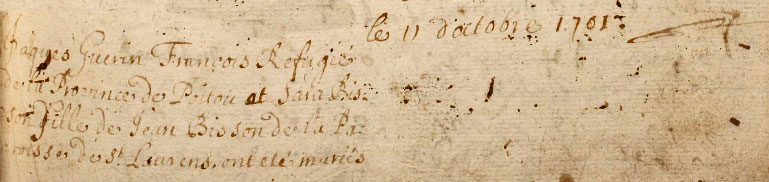 le 11 d'octobre 1701
Jaques Guerin François Refugié
de la Province de Poitou et Sara Bis-
son fille de Jean Bisson de la Pa-
roisse de St. Laurens, ont eté mariés